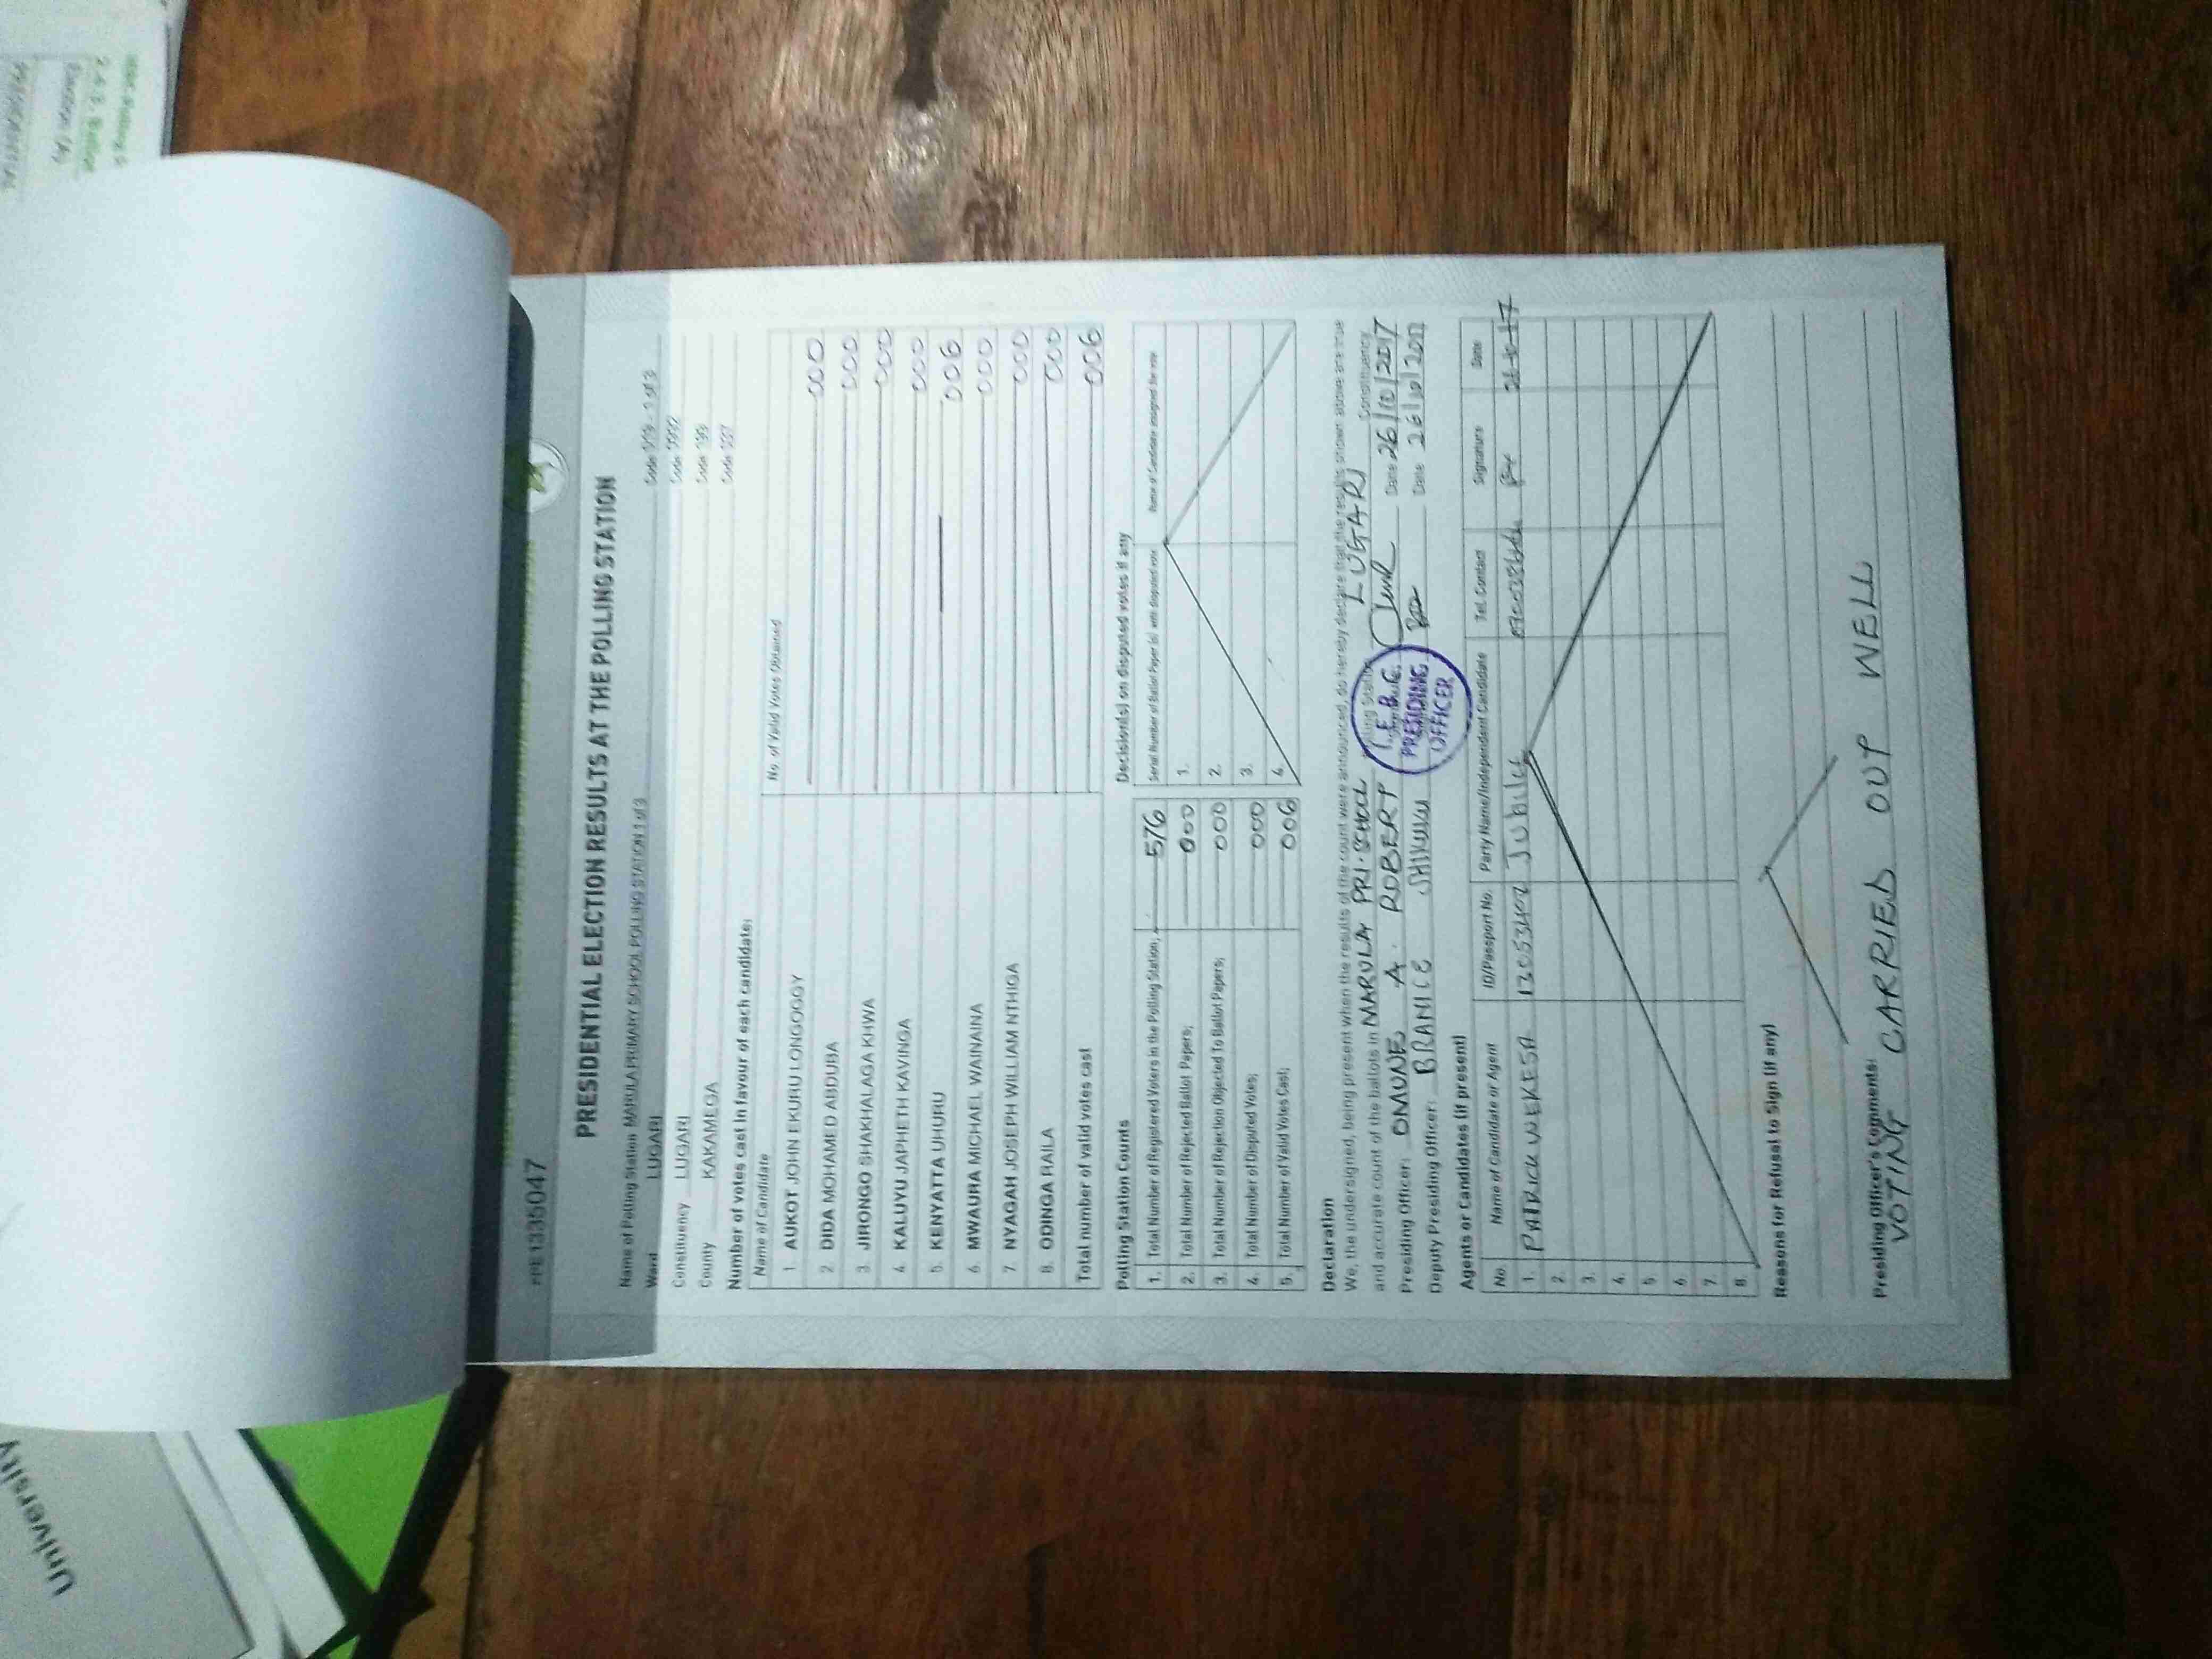 PRE1335047
PRESIDENTIAL ELECTION RESULTS AT THE POLLING STATION
Name of Polling Station MARULA PRIMARY SCHOOL POLLING STATION 1 of 3
Ward LUGARI
Constituency LUGARI
County KAKAMEGA
Number of votes cast in favour of each candidate:
Name of Candidate No. of Valid Votes Obtained
1 AUKOT JOHN EKURU LONGOGGY 000
2 DIDA MOHAMED ABDUBA 000
3. JIRONGO SHAKHALAGA KHWA 000
4 KALUYU JAPHETH KAVINGA 000
5. KENYATTA UHURU 006
6. MWAURA MICHAEL WAINAINA 000
7. NYAGAH JOSEPH WILLIAM NTHIGA 000
8. ODINGA RAILA 000
Total number of valid votes cast 006
Polling Station Counts
1. Total Number of Registered Voters in the Polling Station; 576
2. Total Number of Rejected Ballot Papers; 000
3. Total Number of Rejection Objected To Ballot Papers; 000
4. Total Number of Disputed Votes; 000
5. Total Number of Valid Votes Cast; 006
Decision(s) on disputed votes if any
Serial Number of Ballot Paper (s) with disputed vote Name of Candidate assigned the vote
1.
2.
3.
4.
Declaration
We, the undersigned, being present when the results of the count were announced, do hereby declare that the results shown above are true
and accurate count of the ballots in MARULA PRI. SCHOOL Polling Station LUGARI Constituency
Presiding Officer: OMUNE A. ROBERT Date 26/10/2017
Deputy Presiding Officer: BRANICE SHIKUKU Date 26/10/2017
I.E.B.C.
PRESIDING
OFFICER
Agents or Candidates (if present)
No. Name of Candidate or Agent ID/Passport No. Party Name/Independent Candidate Tel. Contact Signature Date
1. PATRICK WEKESA Jubilee
2.
3.
4.
5
6
7.
8
Reasons for Refusal to Sign (if any)
Presiding Officer's Comments:
VOTING CARRIED OUT WELL
University